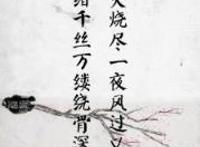 火烧尽一夜风过又
绪千丝万缕绕骨深